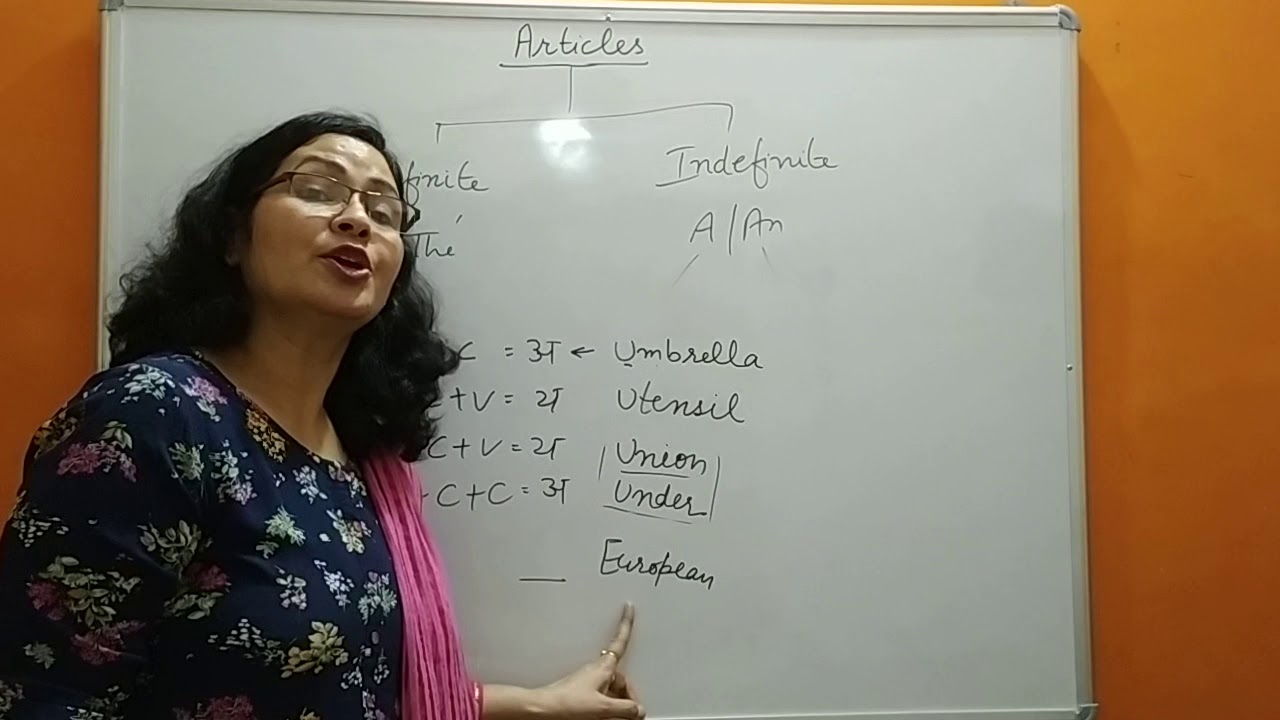 Articles
finite Indefinite
The A/An
C = 3अ ← Umbrella
+V = 2अ Utensil
C+V = 2अ Union
C+C = 3अ Under
__ European